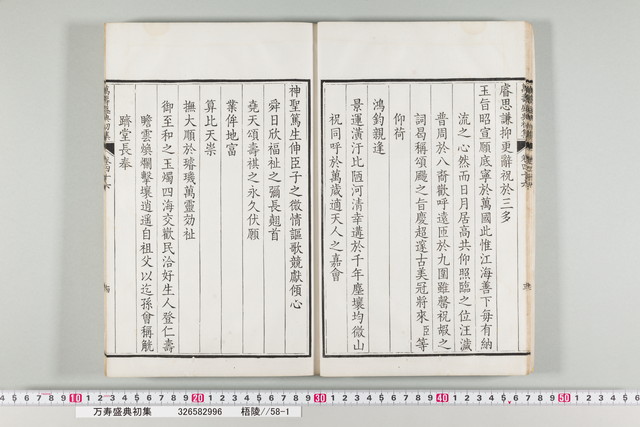 睿思謙抑更辭祝於三多
玉旨昭宣願底寧於萬國此惟江海善下每有納
流之心然而日月居高共仰照臨之位汪濊
普周於八裔歡呼遠匝於九圍雖罄祝嘏之
詞曷稱頌颺之旨慶超邃古美冠將來臣等
仰荷
鴻鈞親逢
景運潢汙比陋河清幸遘於千年塵壤均微山
祝同呼於萬歲適天人之嘉會
神聖篤生伸臣子之微情謳歌競獻傾心
舜日欣福祉之彌長翹首
堯天頌壽祺之永久伏願
業侔地富
算比天崇
撫大順於璿璣萬靈効祉
御至和之玉燭四海交歡民洽好生人登仁壽
瞻雲煥爛擊壤逍遙自祖父以迄孫曾稱觥
躋堂長奉
萬壽盛典初集
卷四十六
万寿盛典初集 326582996 梧陵//58-1